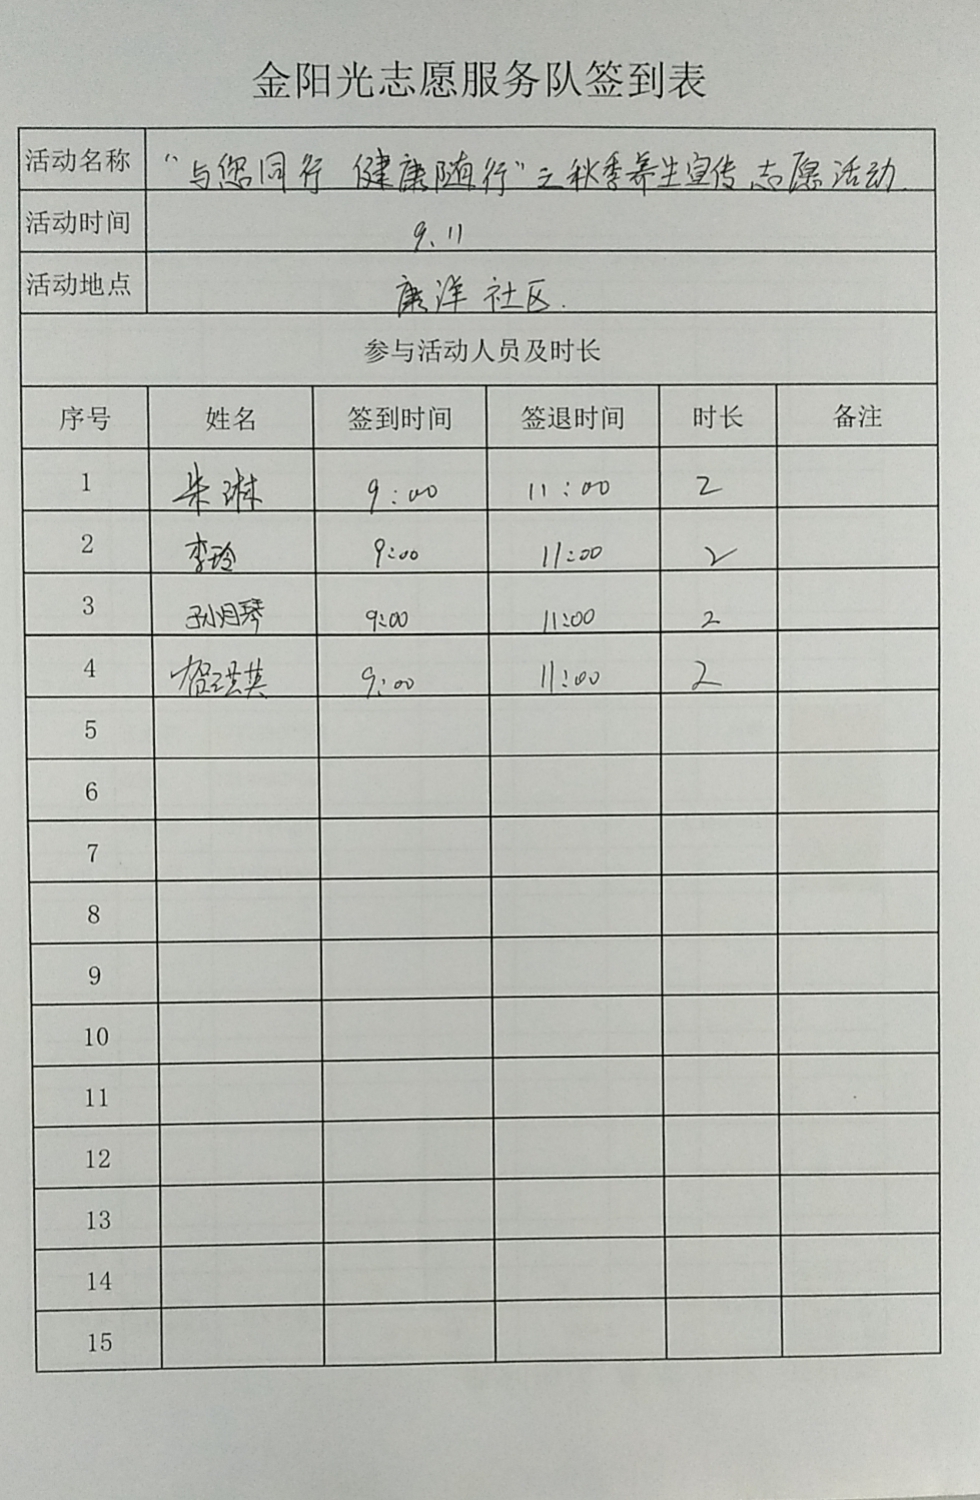 金阳光志愿服务队签到表
活动名称 “与您同行 健康随行”之秋季养生宣传志愿活动.
活动时间 9.11
活动地点 康洋社区.
参与活动人员及时长
序号 姓名 签到时间 签退时间 时长 备注
1 朱琳 9:00 11:00 2
2 李玲 9:00 11:00 2
3 孙月琴 9:00 11:00 2
4 英 9:00 11:00 2
5
6
7
8
9
10
11
12
13
14
15